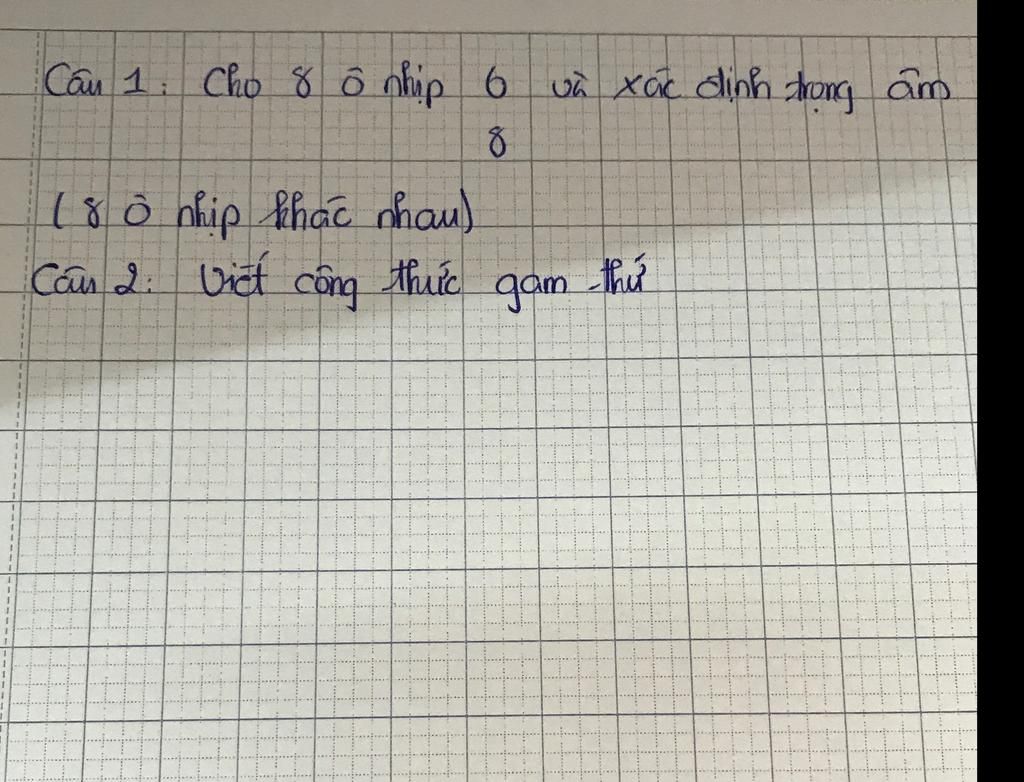 Câu 1: Cho 8 ô nhịp 6 và xác định trọng âm
8
(8 ô nhịp khác nhau)
Câu 2: Viết công thức gam thứ